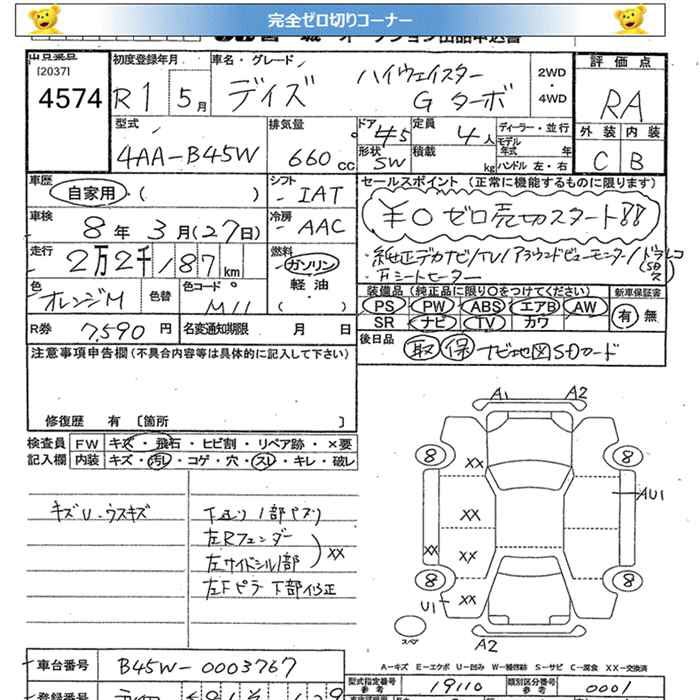 完全ゼロ切りコーナー
[2037]
4574
初度登録年月 車名・グレード
R1 5月 デイズ ハイウェイスター Gターボ
2WD・4WD
評価点
RA
外装 内装
C B
型式 4AA-B45W
排気量 660cc
ドア 45
形状 SW
定員 4人
積載 kg
ディーラー・並行
モデル年式 年
ハンドル 左・右
車歴 自家用・( )
シフト IAT
車検 8年3月(27日)
冷房 AAC
走行 2万2千187km
燃料 ガソリン・軽油・
色 オレンジM 色替 色コードM
R券 7,590円 名変通知期限 月 日
セールスポイント (正常に機能するものに限ります)
¥0ゼロ売切スタート!!
・純正デカナビ/TV/アラウンドビューモニター/ドラレコ
・シートヒーター
装備品 (純正品に限り○をつけてください) 新車保証書
PS PW ABS エアB AW
SR ナビ TV カワ
有 無
後日品 取 保 ナビ地図SDカード
注意事項申告欄(不具合内容等は具体的に記入して下さい)
修復歴 有 [箇所 ]
検査員記入欄
FW キズ・飛石・ヒビ割・リペア跡・×要
内装 キズ・汚レ・コゲ・穴・スレ・キレ・破レ
キズU・ウスキズ
左Rフェンダー
左サイドシル1部 XX
左Fピラー下部修正
A1 A2
8 8
XX
AU1
XX
XX XX
8 8
U1 XX
スペア
A2
A-キズ E-エクボ U-凹み W-補修跡 S-サビ C-腐食 XX-交換済
車台番号 B45W-0003767
型式指定番号 19110
類別区分番号 0001
参考 参考
登録番号